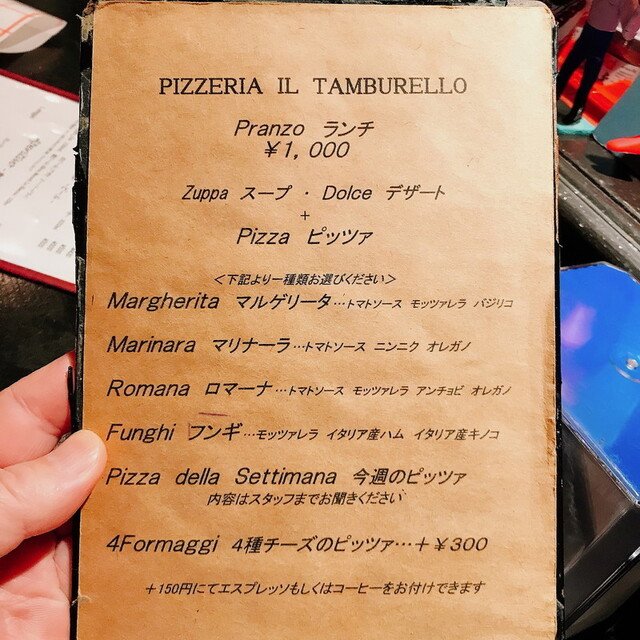 PIZZERIA IL TAMBURELLO
Pranzo ランチ
¥1,000
Zuppa スープ ・ Dolce デザート
+
Pizza ピッツァ
<下記より一種類お選びください>
Margherita マルゲリータ…トマトソース モッツァレラ バジリコ
Marinara マリナーラ…トマトソース ニンニク オレガノ
Romana ロマーナ…トマトソース モッツァレラ アンチョビ オレガノ
Funghi フンギ…モッツァレラ イタリア産ハム イタリア産キノコ
Pizza della Settimana 今週のピッツァ
内容はスタッフまでお聞きください
4Formaggi 4種チーズのピッツァ…+¥300
+150円にてエスプレッソもしくはコーヒーをお付けできます